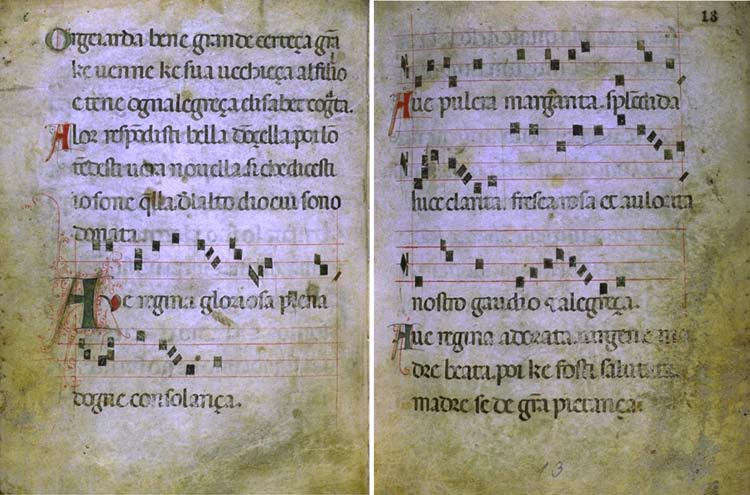 Or gciarda bene grande certeça grã
ke uenne ke sua uechieça al filio
e tene ogn alegreça elisabet
Alor respõdisti bella dõçella poi lo
ntedesti uera nouella si che dicesti
io sone qlla di alto dio cui sono
donata.
Aue regina gloriosa plena
dogne consolança.
18
Aue pulcra margarita. splẽdida
luce clarita. fresca rosa et aulorita
nostro gaudio et alegreça.
Aue regina adorata. uirgene ma
dre beata. poi ke fosti salutata
madre se de grã pietança
13